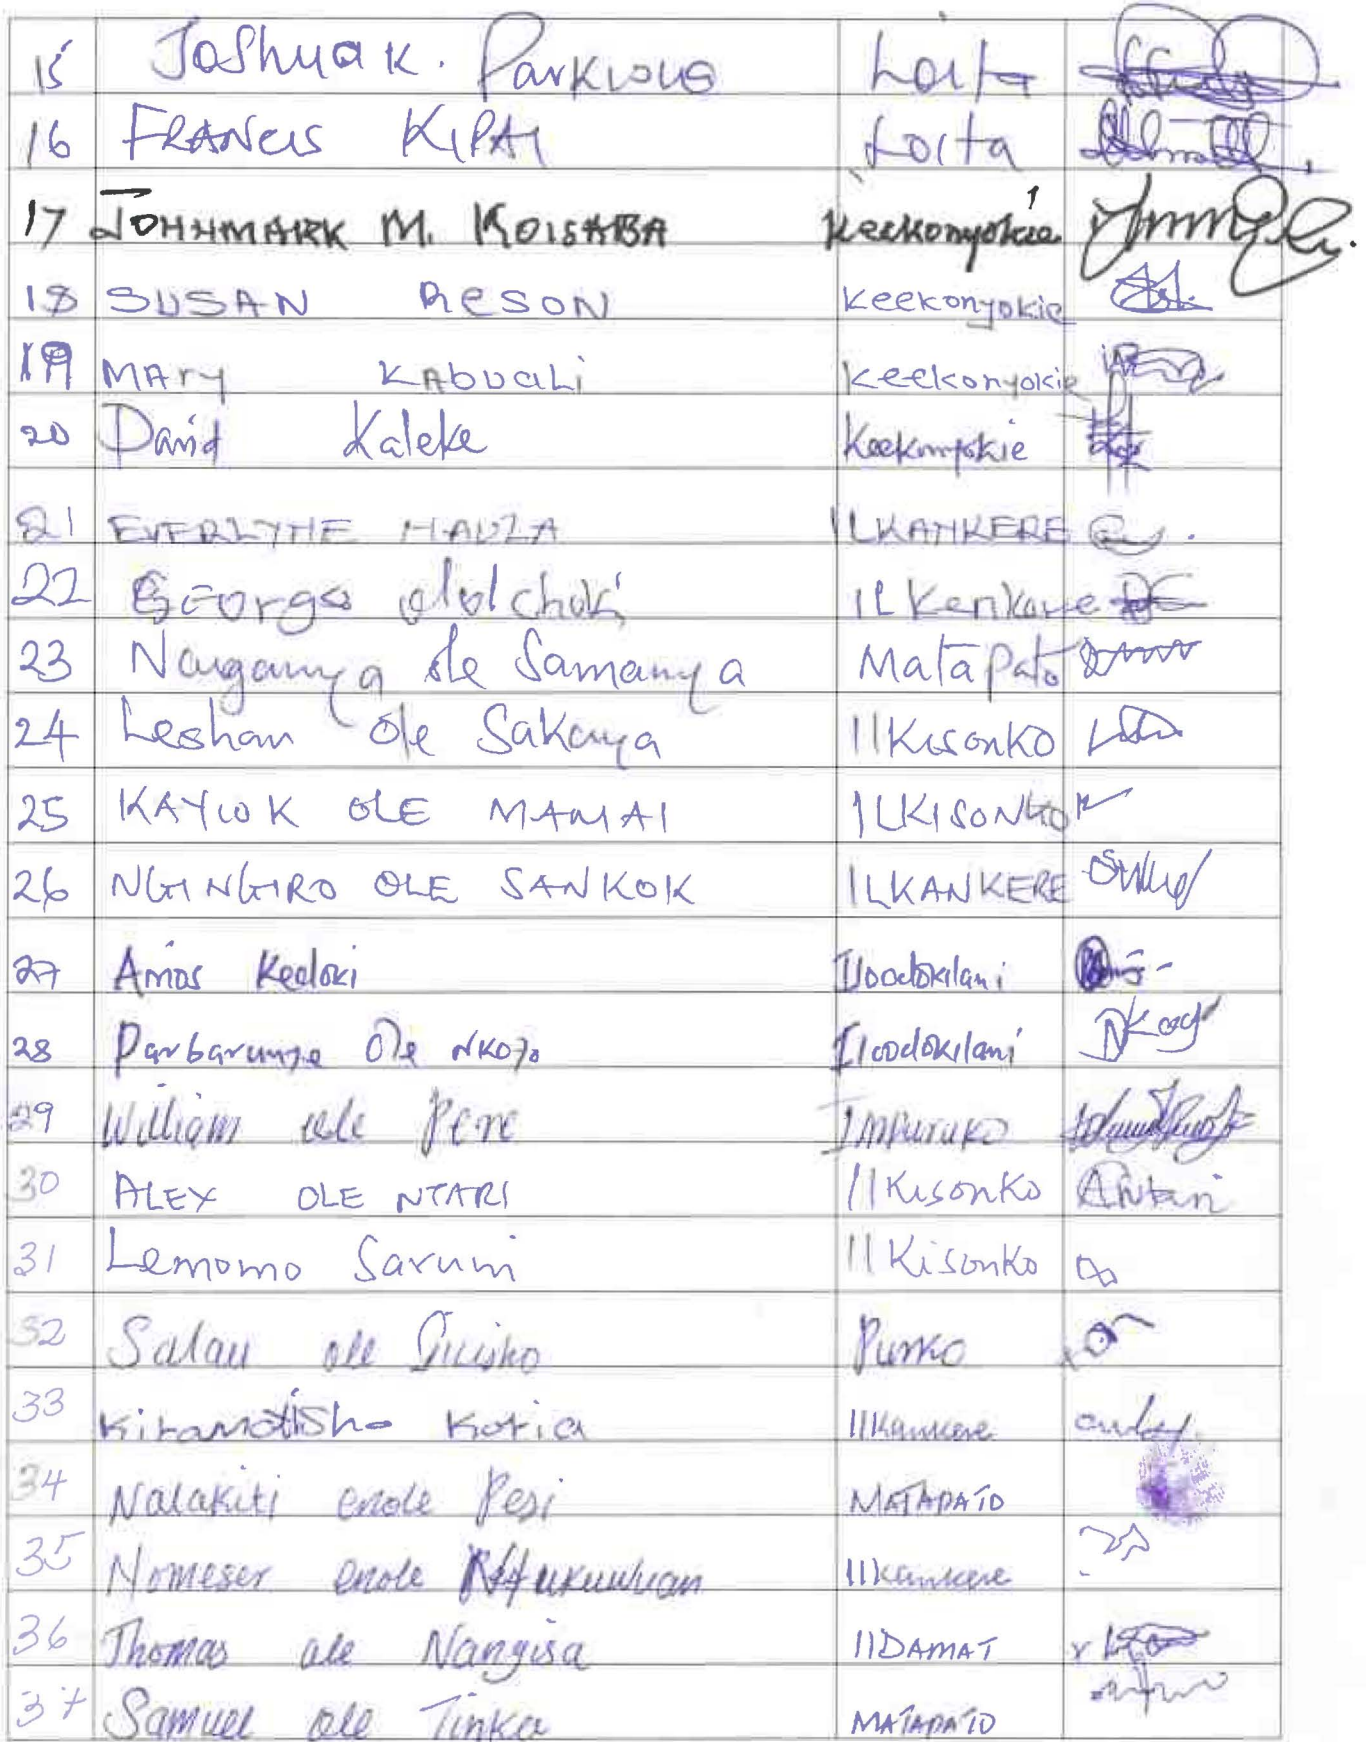 15 Joshua K. Parkwoua Loita
16 FRANCIS KIPAI Loita
17 JOHHMARK M. KOISABA Keekonyokie
18 SUSAN RESON Keekonyokie
19 MARY KABUALI Keekonyokie
20 David Kaleke Keekonyokie
21 EVERLYNE ILKANKERE
22 George ololchoki IL Kenkere
23 ole Samanya Matapato
24 Leshan Ole Sakaya IlKisonKO
25 KAYIOK OLE MAMAI ILKISONKO
26 NGINGIRO OLE SANKOK ILKANKERE
27 Amos Keeloki Iloodokilani
28 Ole NKOJO Iloodokilani
29 William ole Pere Impuruko
30 ALEX OLE NTARI IlKisonKo
31 Lemomo Saruni Il Kisonko
32 Salau ole Purko
33 Kiramatisho Kotia Ilkankere
34 Nalakiti enole Pesi MATAPATO
35 Nomeser enole Ilkankere
36 Thomas ole Nangisa IlDAMAT
37 Samuel ole Tinka MATAPATO